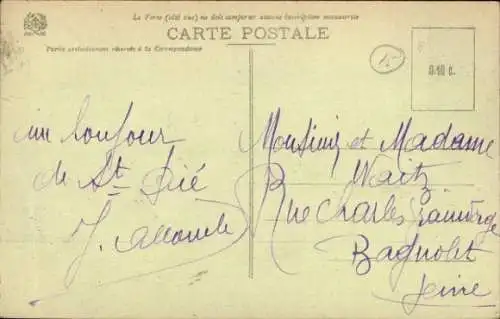 Le Verso (côté vue) ne doit comporter aucune inscription manuscrite
CARTE POSTALE
Partie exclusivement réservée à la Correspondance
15
un bonjour
de St Dié
J.
Monsieur et Madame
Waitz
Rue Charles
Bagnolet
Seine